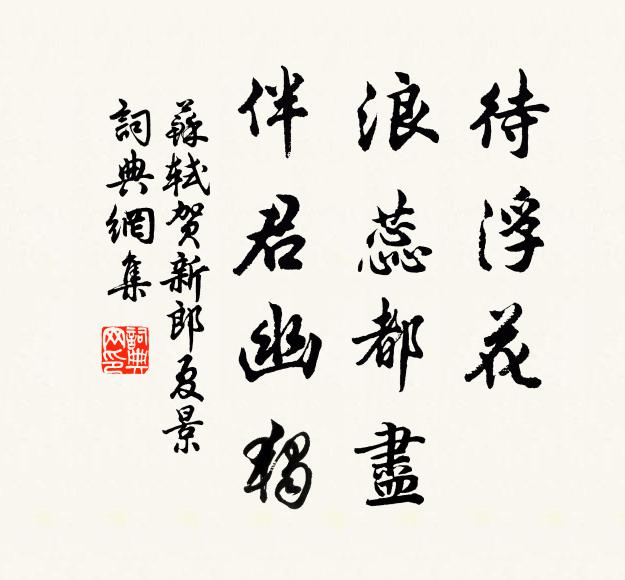 待浮花
浪蕊都盡
伴君幽獨
蘇軾賀新郎夏景
詞典網集
詞典網印